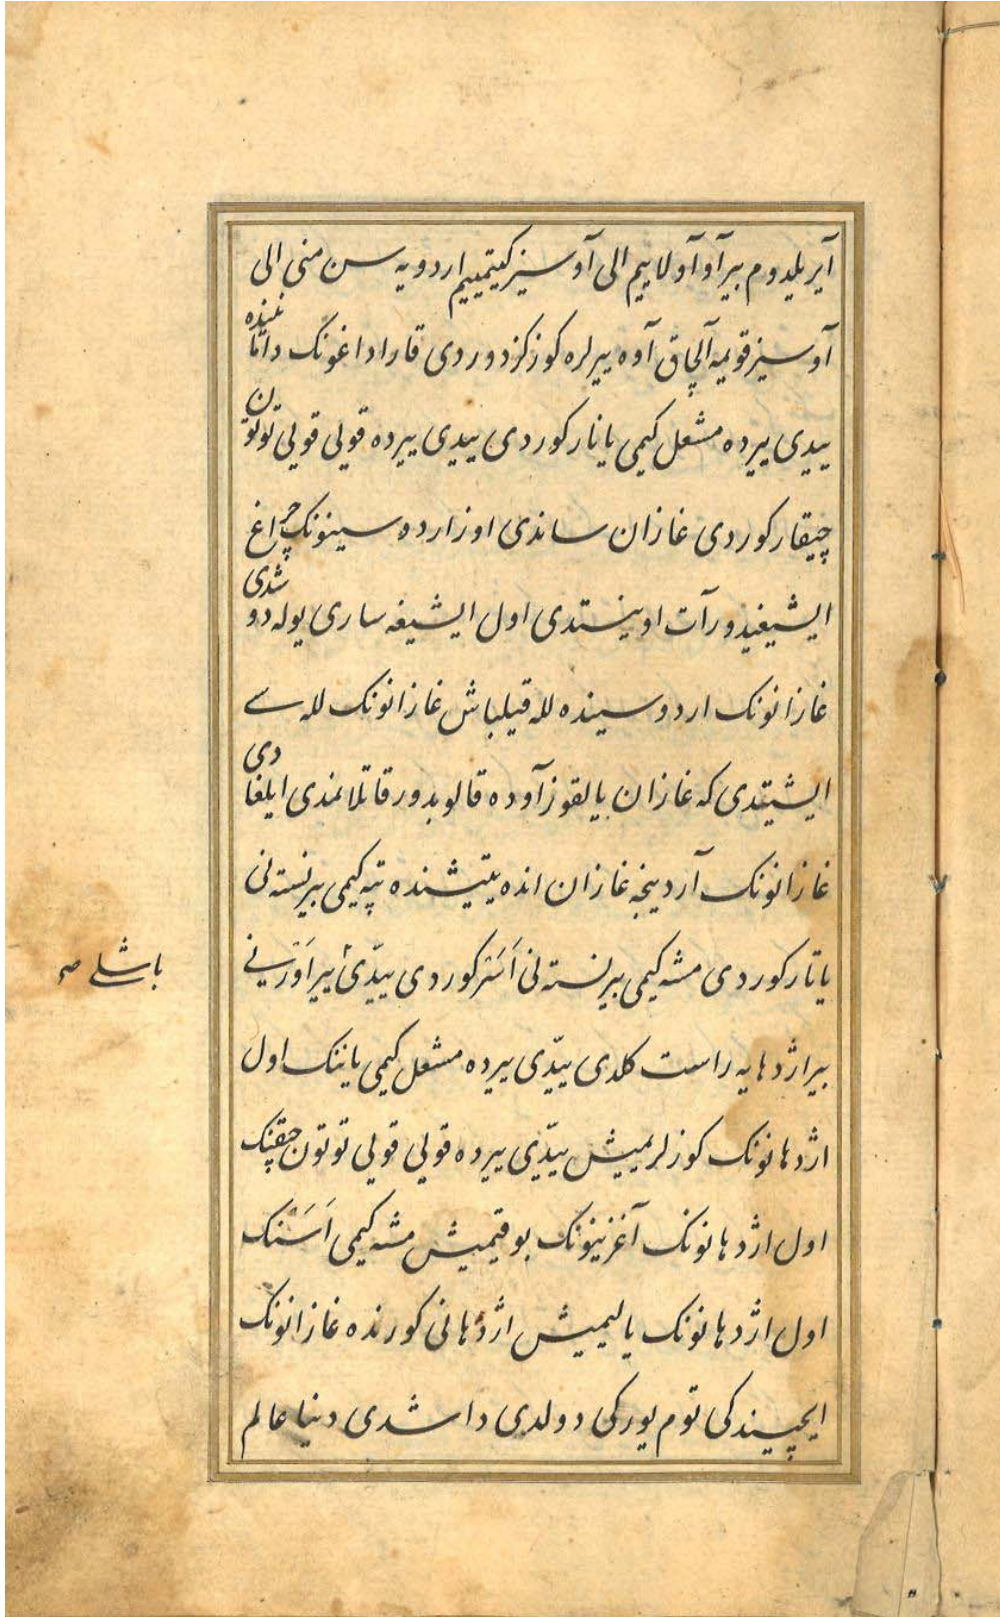 آیریلیدوم بیر آو آولاییم الی آو سیز کیتمییم اردویه سن منی الی
آو سیز قویمه آلچاق آوه ییرلره کوز کزدوردی قارا داغونک داتاغنده
ییدی ییرده مشعل کیمی یانار کوردی ییدی ییرده قولی قولی توتون
چیقار کوردی غازان ساندی اوزارده سینونک چراغ
ایشیغیدور آت اوینستدی اول ایشیغه ساری یوله دوشدی
غازانونک اردوسینده لله قیلباش غازانونک لله سے
ایشیتدی که غازان یالقوز آوده قالوبدور قاتلانمدی ایلغادی
غازانونک آردینجه غازان انده یتیشنده تپه کیمی بیر نسته نی
یاتار کوردی مشه کیمی بیر نسته نی اَسَر کوردی ییدّیٔ بیر اَوَرَنی
باشلے صح
بیر اژدهایه راست کلدی ییدّی ییرده مشعل کیمی یاننک اول
اژدهانونک کوزلریمیش ییدّی ییرده قولی قولی توتون چیقنک
اول اژدهانونک آغزینونک بوقیمیش مشه کیمی اَسَنْنک
اول اژدهانونک یالیمیش اژدهانی کورنده غازانونک
ایچیندکی توم یورکی دولدی داشدی دنیا عالم